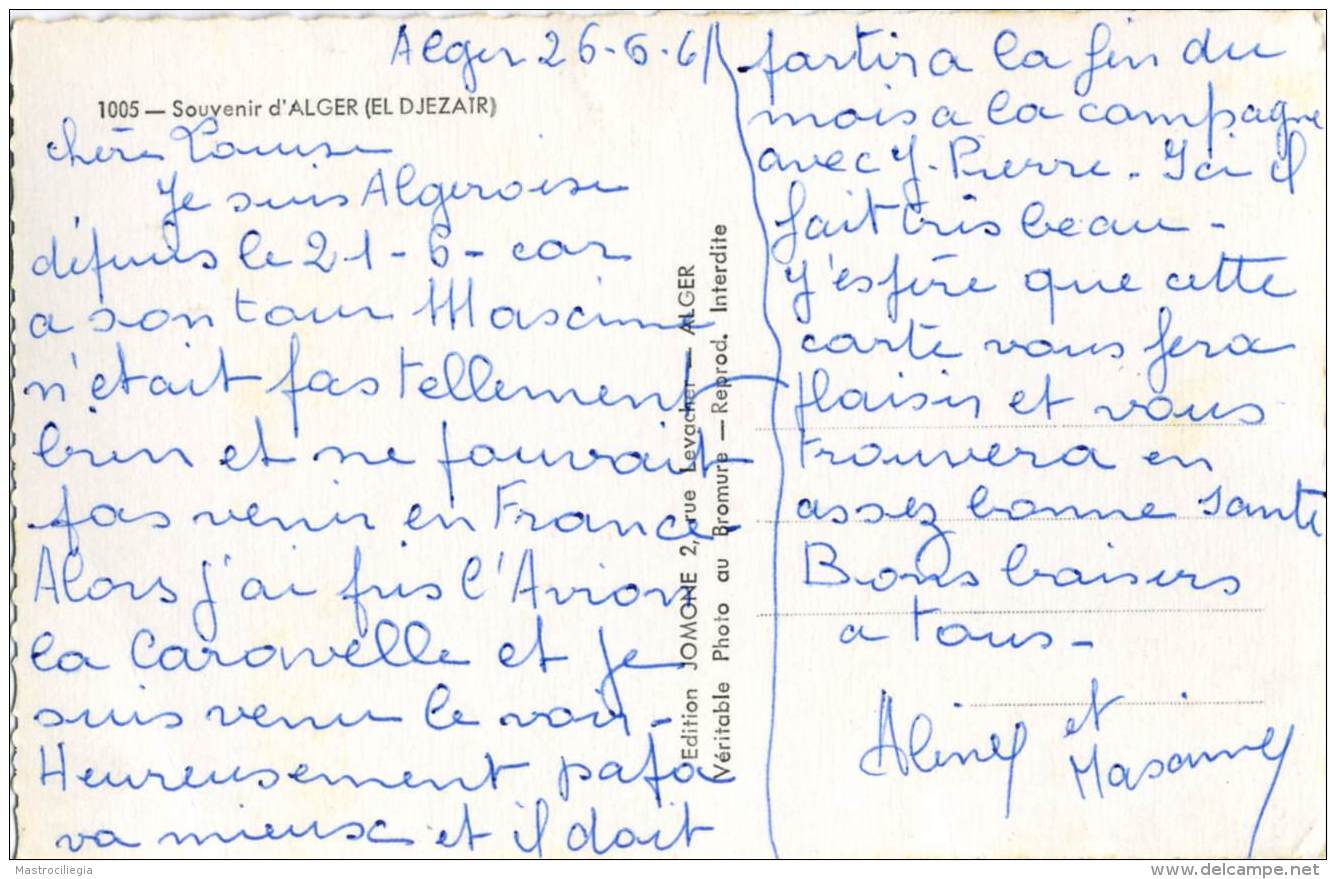 Alger 26-6-61
1005 — Souvenir d'ALGER (EL DJEZAIR)
chère Louise
Je suis Algeroise
dépuis le 21-6- car
a son tour Maxime
n'était pas tellement
bien et ne pouvait
pas venir en France
Alors j'ai pris l'Avion
la Caravelle et je
suis venu le voir-
Heureusement papa
va mieux et il doit
partir a la fin du
mois a la campagne
avec J. Pierre - Ici il
fait très beau -
J'espère que cette
carte vous fera
plaisir et vous
trouvera en
assez bonne santé
Bons baisers
a tous -
Aline et
Maxime
Edition JOMONE 2, rue Levacher — ALGER
Véritable Photo au Bromure — Reprod. Interdite
Mastrociliegia
www.delcampe.net